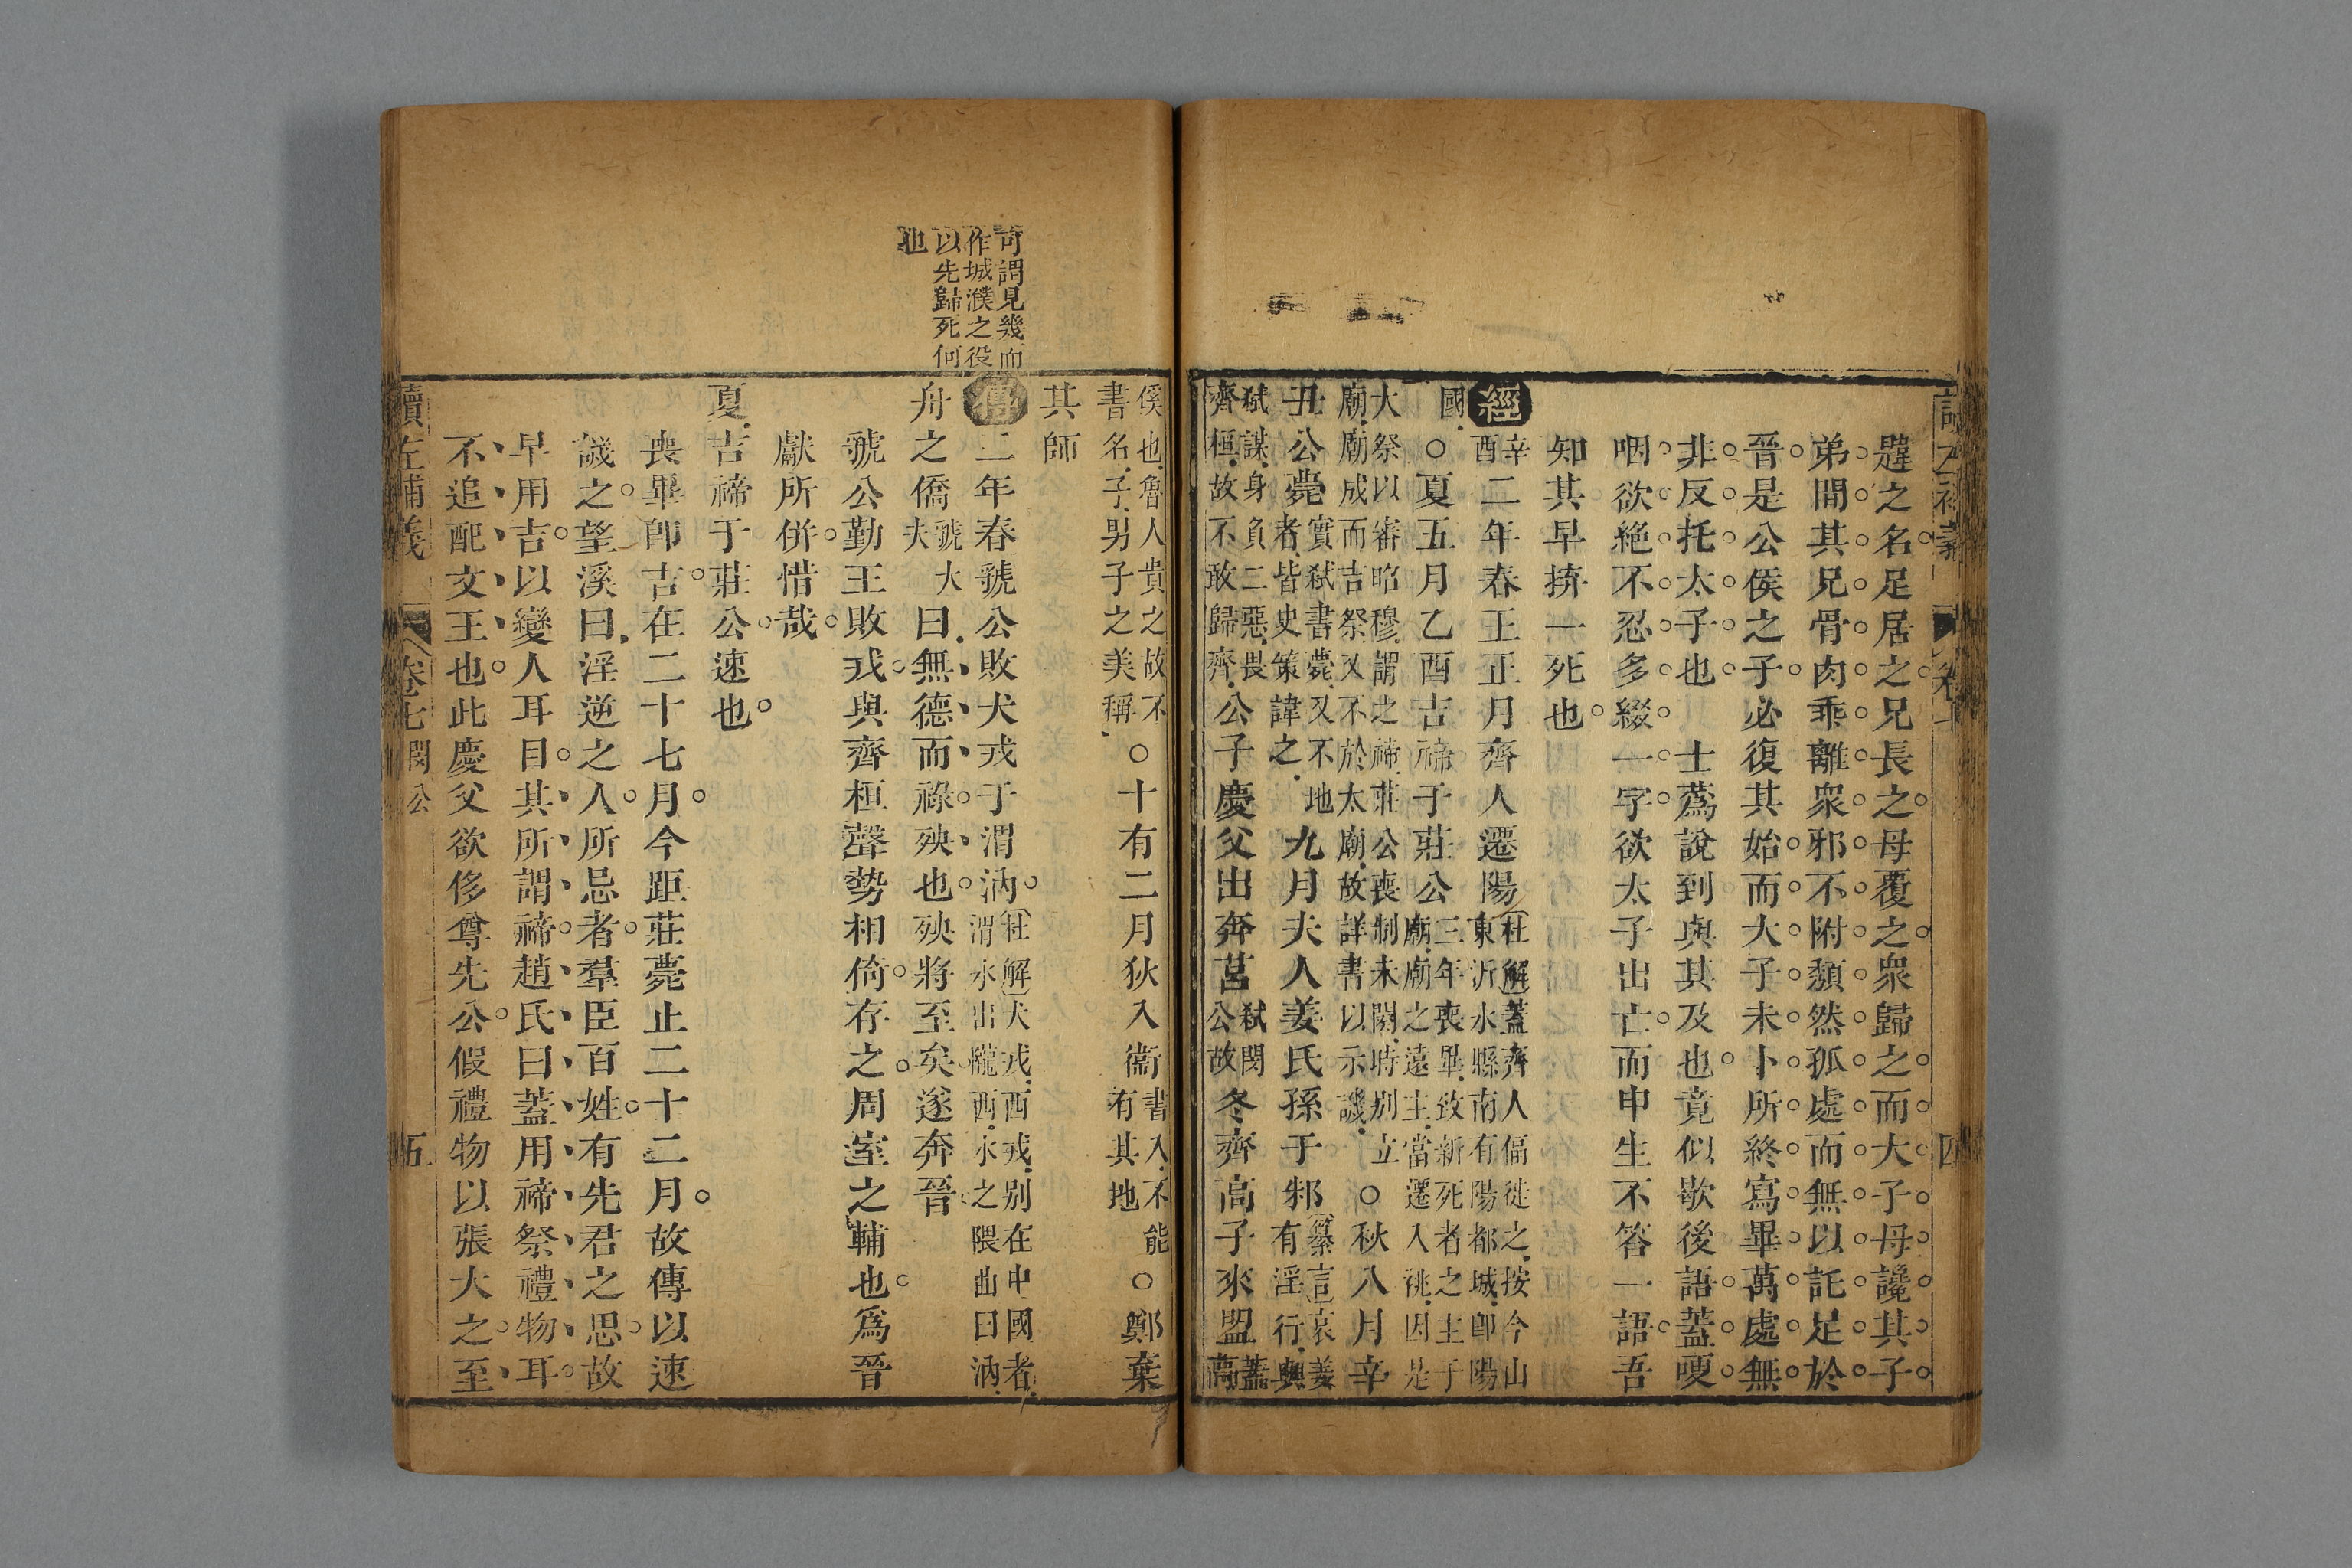 讀左補義 卷七 四
韙之名足居之兄長之母覆之衆歸之而大子母讒其子
弟間其兄骨肉乖離衆邪不附頹然孤處而無以託足於
晉是公侯之子必復其始而大子未卜所終寫畢萬處無
非反托太子也 士蔿說到與其及也竟似歇後語蓋哽
咽欲絶不忍多綴一字欲太子出亡而申生不答一語吾
知其早拚一死也
經 辛酉 二年春王正月齊人遷陽 杜解蓋齊人偪徙之按今山東沂水縣南有陽都城卽陽
國 ○夏五月乙酉吉禘于莊公 三年喪畢致新死者之主于廟廟之遠主當遷入祧因是
大祭以審昭穆謂之禘莊公喪制未闋時别立廟廟成而吉祭又不於太廟故詳書以示譏 ○秋八月辛
丑公薨 實弑書薨又不地者皆史策諱之 九月夫人姜氏孫于邾 纂言哀姜有淫行與
弑謀身負二惡畏齊桓故不敢歸齊 公子慶父出奔莒 弑閔公故 冬齊高子來盟 蓋高
傒也魯人貴之故不書名子男子之美稱 ○十有二月狄入衞 書入不能有其地 ○鄭棄
其師
傳 二年春虢公敗犬戎于渭汭 杜解犬戎西戎别在中國者渭水出隴西水之隈曲曰汭
舟之僑 虢大夫 曰無德而祿殃也殃將至矣遂奔晉
虢公勤王敗戎與齊桓聲勢相倚存之周室之輔也爲晉
獻所併惜哉
夏吉禘于莊公速也
喪畢卽吉在二十七月今距莊薨止二十二月故傳以速
譏之望溪曰淫逆之人所忌者羣臣百姓有先君之思故
早用吉以變人耳目其所謂禘趙氏曰蓋用禘祭禮物耳
不追配文王也此慶父欲侈尊先公假禮物以張大之至
可謂見幾而
作城濮之役
以先歸死何
也
讀左補義 卷七 閔公 五